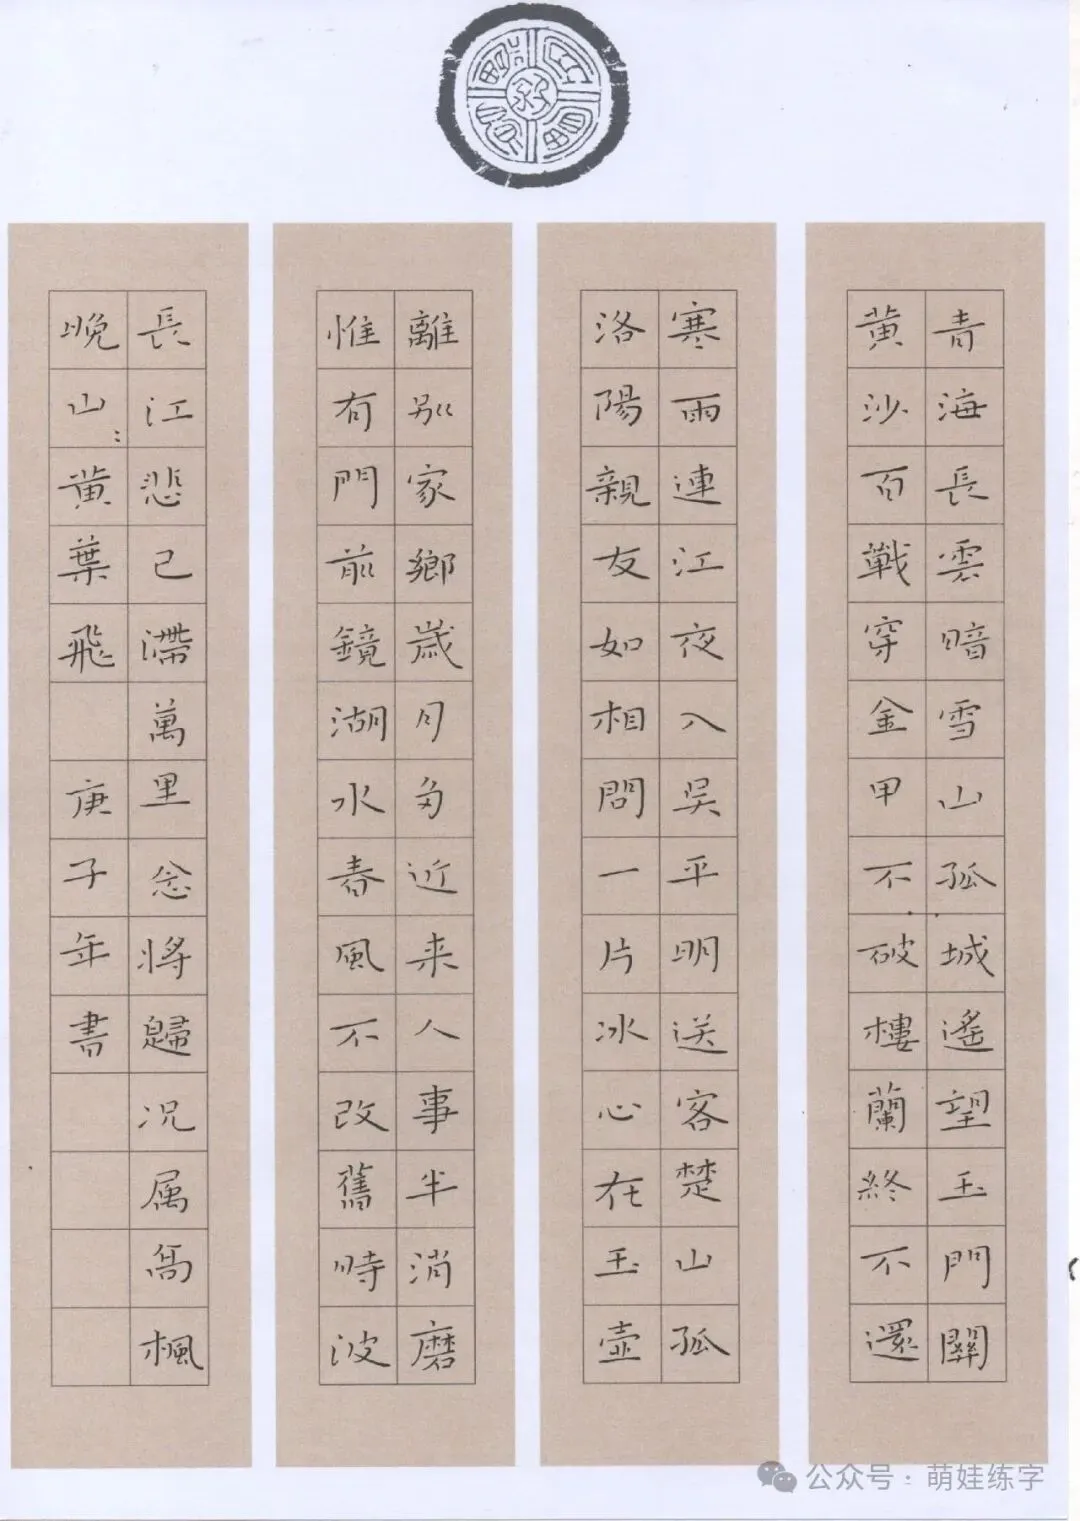 青海長雲暗雪山孤城遙望玉門關
黄沙百戰穿金甲不破樓蘭終不還
寒雨連江夜入吴平明送客楚山孤
洛陽親友如相問一片冰心在玉壺
離別家鄉歲月多近来人事半消磨
惟有門前鏡湖水春風不改舊時波
長江悲已滯萬里念將歸况属高楓
晚山:黄葉飛 庚子年書
公众号:萌娃练字